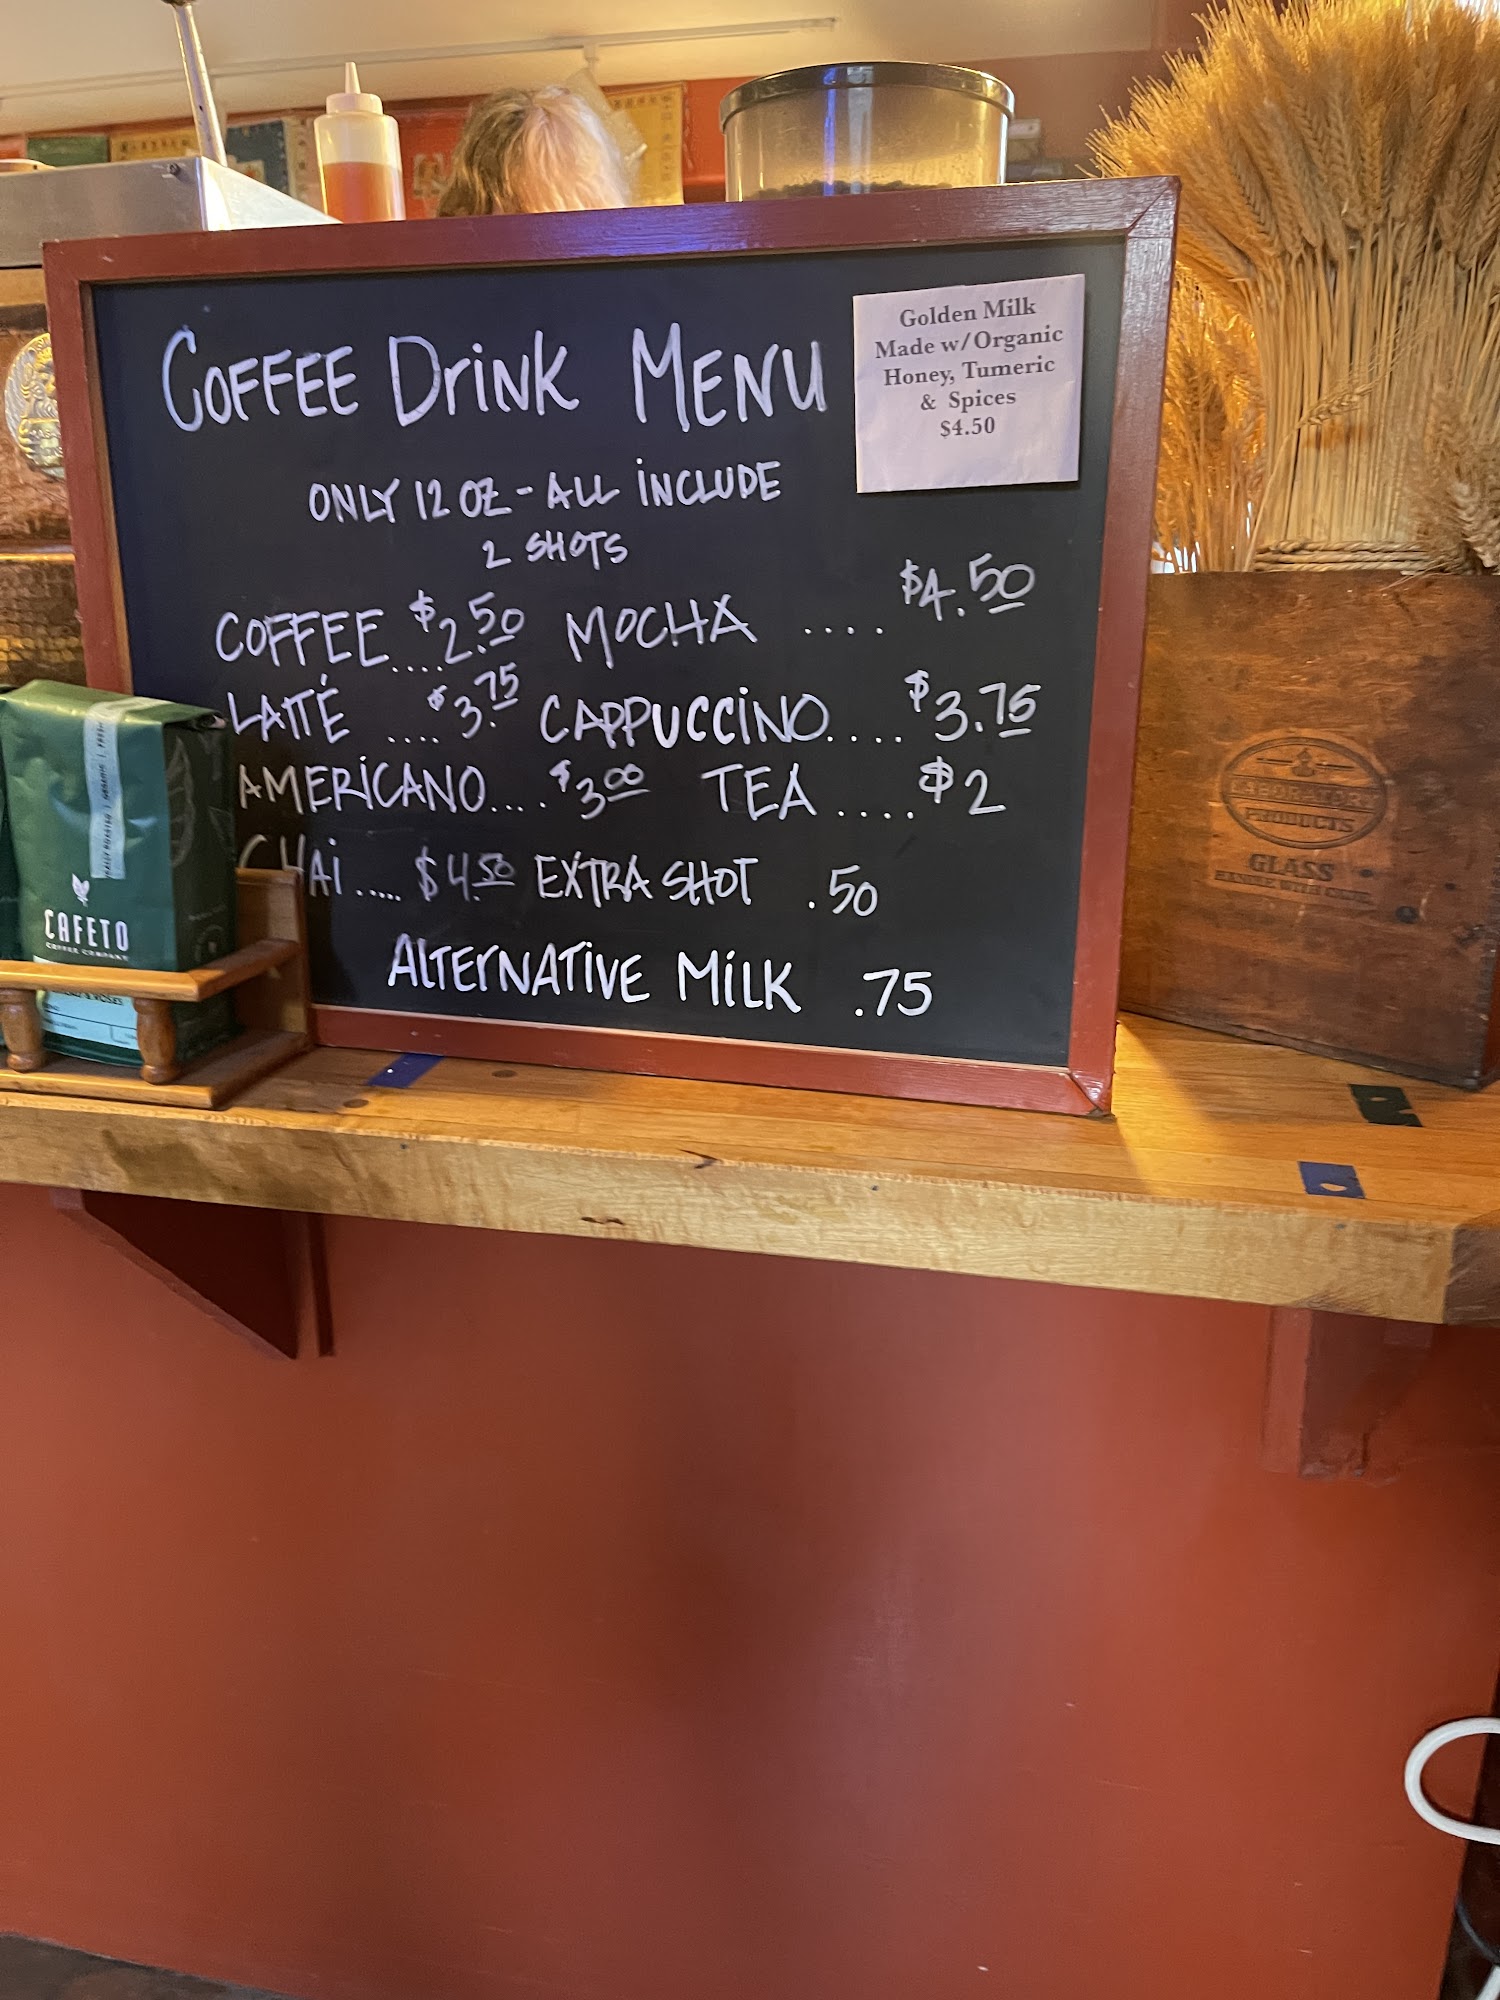 COFFEE DrINK MENU
ONLY 12 OZ - ALL INCLUDE
2 SHOTS
COFFEE....$2.50 MOCHA ....$4.50
LATTÉ ....$3.75 CAPPUCCINO....$3.75
AMERICANO....$3.00 TEA ....$2
CHAI .....$4.50 EXTRA SHOT .50
ALTERNATIVE MILK .75
Golden Milk
Made w/Organic
Honey, Tumeric
& Spices
$4.50
CAFETO
COFFEE COMPANY
LABORATORY
PRODUCTS
GLASS
HANDLE WITH CARE